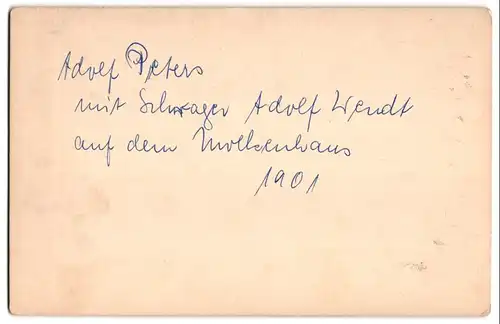 Adolf Peters
mit Schwager Adolf Wendt
auf dem Molkenhaus
1901